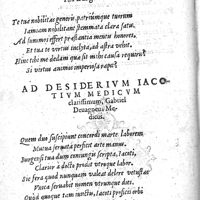 Te tua nobilitas generis, patriæque tuorum
Iamiam nobilitant stemmata clara satis.
Ad summos effert præstantia mentis honores,
Et tua te virtus inclyta, ad astra vehit.
Hinc tibi me dedam quæ sit mihi causa requiris?
Si virtus animos imperiosa rapit?
AD DESIDERIVM IACO-
TIVM MEDICVM
clarissimum, Gabriel
Deuagneus Me-
dicus.
Quem duo suscipiunt concordi marte laborem
Mutua seruata perficit arte manus.
tua dum coniungis scripta, Iacoti,
Clarior à docto prodit vterque labor.
Sic fera quod nunquam valeat delere vetustas
Vinca seruabit nomen vtrumque dies.
Quod quoque tam iunctis, Iacoti, prosicis orbi